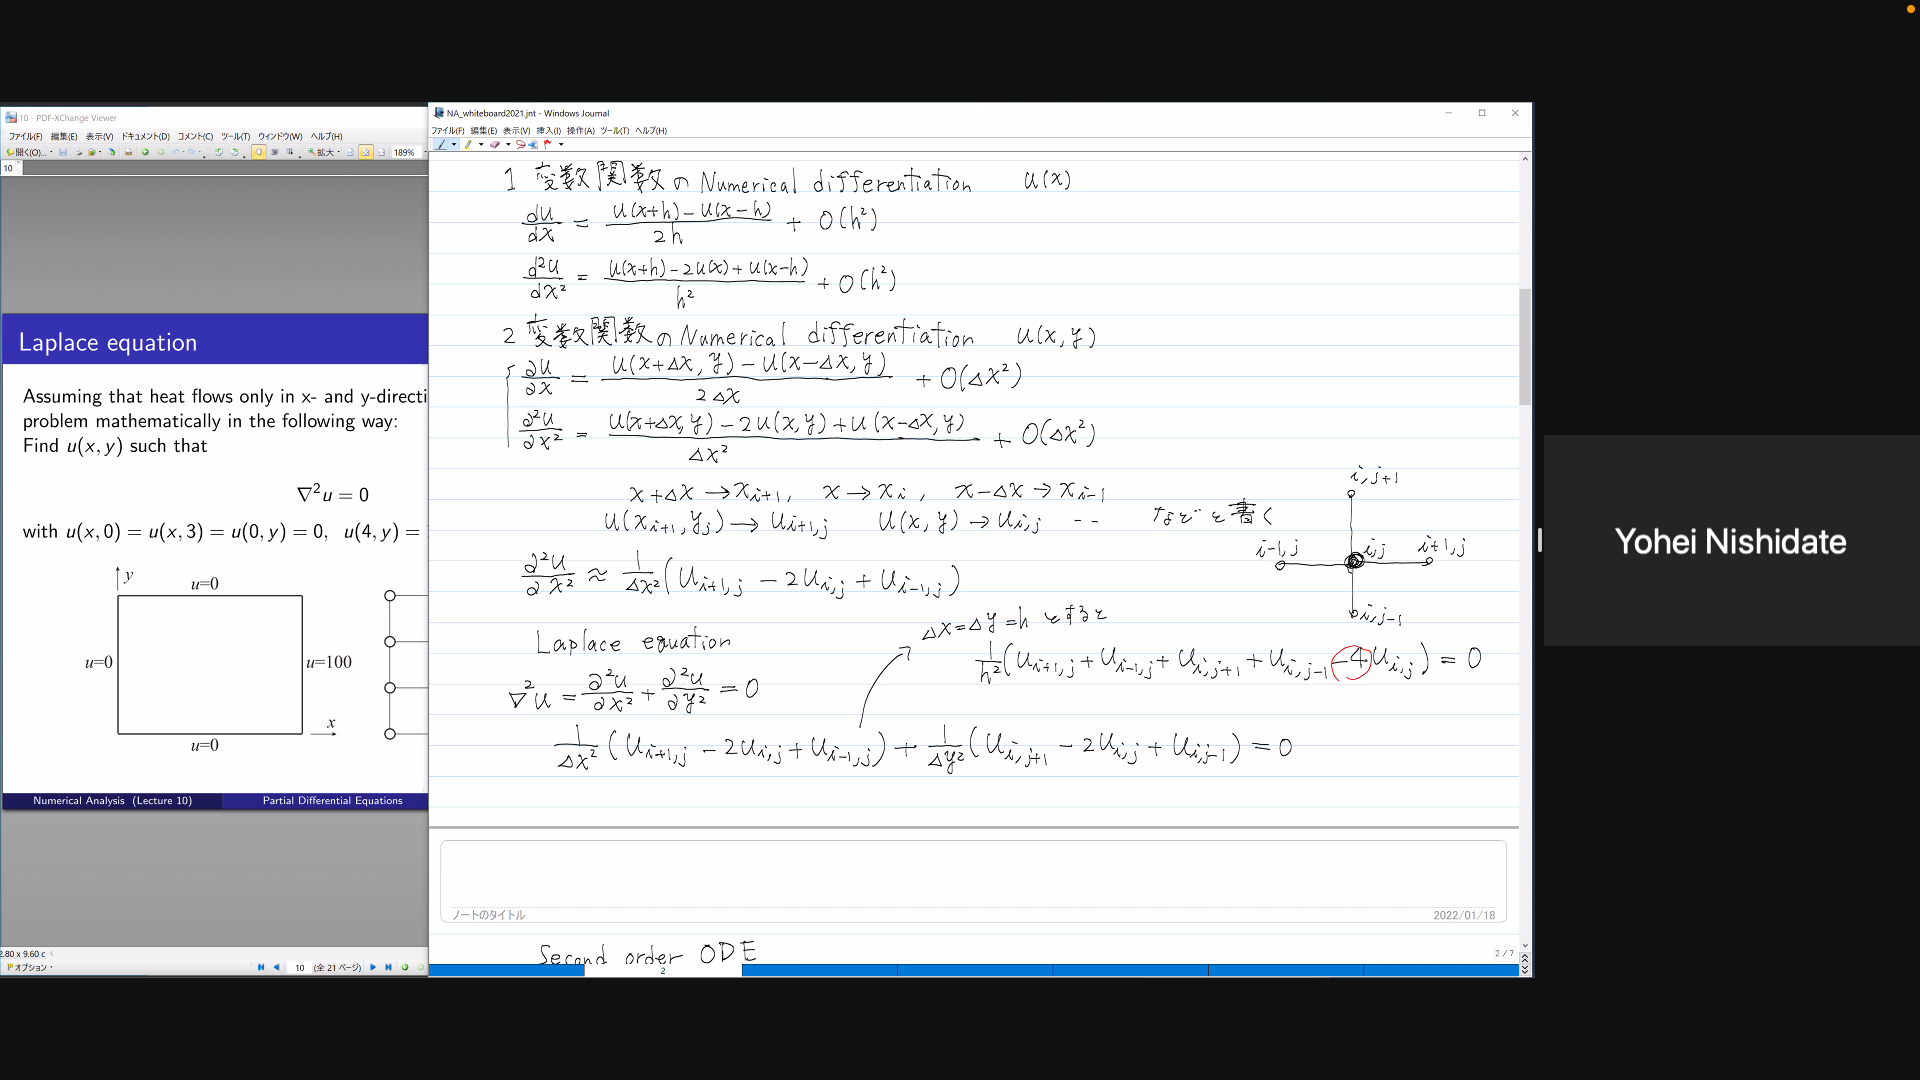 10 - PDF-XChange Viewer
ファイル(F) 編集(E) 表示(V) ドキュメント(D) コメント(C) ツール(T) ウィンドウ(W) ヘルプ(H)
開く(O)... 拡大 189%
10
Laplace equation
Assuming that heat flows only in x- and y-directi
problem mathematically in the following way:
Find u(x, y) such that
∇²u = 0
with u(x, 0) = u(x, 3) = u(0, y) = 0, u(4, y) =
y
u=0
u=0
u=100
x
u=0
Numerical Analysis (Lecture 10) Partial Differential Equations
2.80 x 9.60 c
オプション
10 (全 21 ページ)
NA_whiteboard2021.jnt - Windows Journal
ファイル(F) 編集(E) 表示(V) 挿入(I) 操作(A) ツール(T) ヘルプ(H)
1 変数関数の Numerical differentiation u(x)
du/dx = (u(x+h) - u(x-h))/2h + O(h²)
d²u/dx² = (u(x+h) - 2u(x) + u(x-h))/h² + O(h²)
2 変数関数の Numerical differentiation u(x, y)
∂u/∂x = (u(x+Δx, y) - u(x-Δx, y))/2Δx + O(Δx²)
∂²u/∂x² = (u(x+Δx, y) - 2u(x, y) + u(x-Δx, y))/Δx² + O(Δx²)
x+Δx → x_{i+1}, x → x_i, x-Δx → x_{i-1}
u(x_{i+1}, y_j) → u_{i+1,j} u(x, y) → u_{i,j} -- などと書く
i, j+1
i-1, j
i, j
i+1, j
i, j-1
∂²u/∂x² ≈ 1/Δx² (u_{i+1,j} - 2u_{i,j} + u_{i-1,j})
Δx = Δy = h とすると
Laplace equation
1/h² (u_{i+1,j} + u_{i-1,j} + u_{i,j+1} + u_{i,j-1} - 4u_{i,j}) = 0
∇²u = ∂²u/∂x² + ∂²u/∂y² = 0
1/Δx² (u_{i+1,j} - 2u_{i,j} + u_{i-1,j}) + 1/Δy² (u_{i,j+1} - 2u_{i,j} + u_{i,j-1}) = 0
ノートのタイトル
2022/01/18
Second order ODE
2 / 7
2
Yohei Nishidate